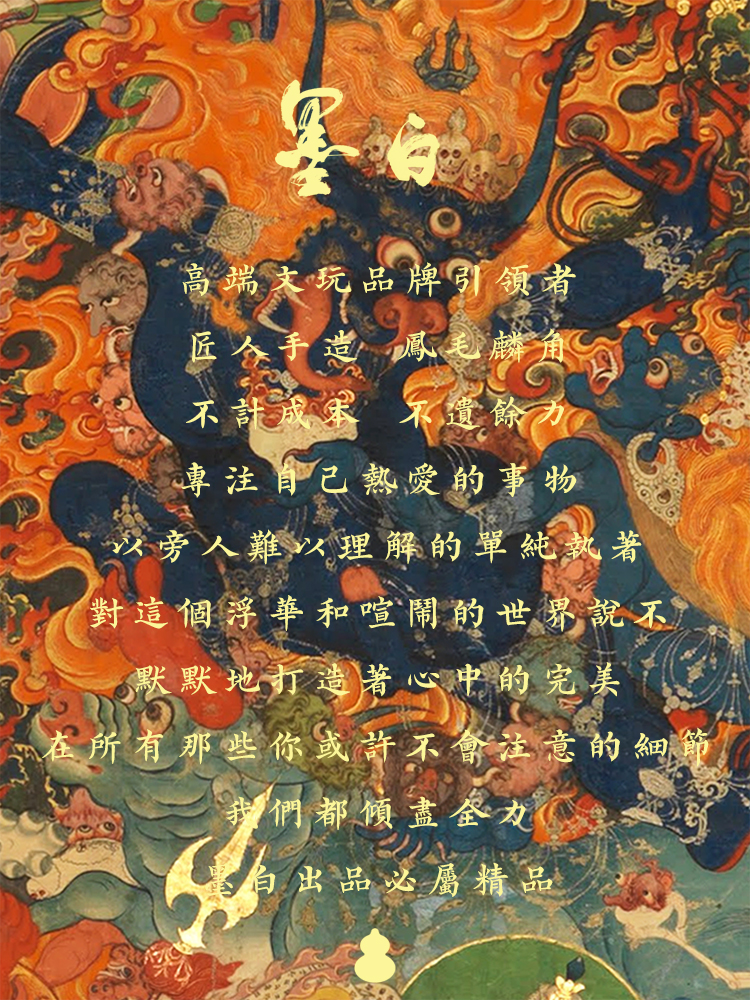 墨白
高端文玩品牌引領者
匠人手造 鳳毛麟角
不計成本 不遺餘力
專注自己熱愛的事物
以旁人難以理解的單純執著
對這個浮華和喧鬧的世界說不
默默地打造著心中的完美
在所有那些你或許不會注意的細節
我們都傾盡全力
墨白出品必屬精品